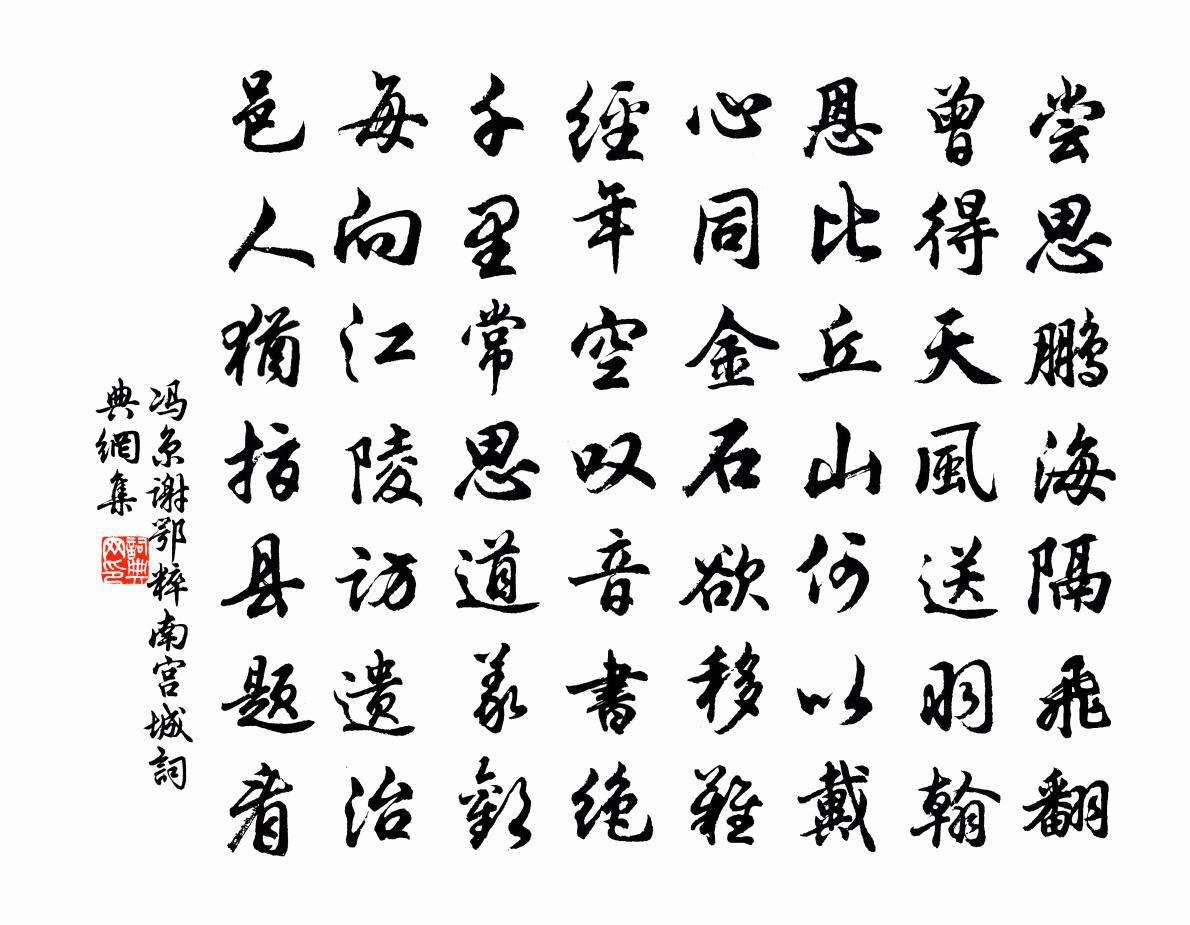 尝思鹏海隔飛翻
曾得天風送羽翰
恩比丘山何以戴
心同金石欲移難
經年空叹音書绝
千里常思道義歡
每向江陵访遗治
邑人猶指县题看
冯京谢鄂粹南宫城詞
典網集